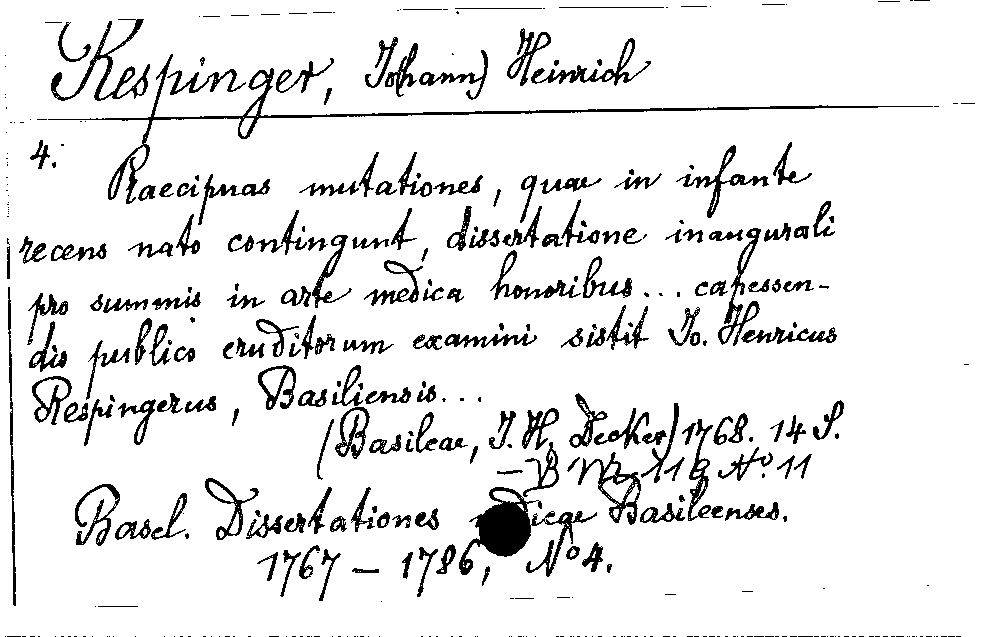 Respinger, Johann) Heinrich
4.
Praecipuas mutationes, quae in infante
recens nato contingunt, dissertatione inaugurali
pro summis in arte medica honoribus... capessen-
dis publico eruditorum examini sistit Jo. Henricus
Respingerus, Basiliensis...
(Basileae, J. H. Decker) 1768. 14 S.
– B No 11
Basel. Dissertationes Basileenses.
1767 – 1786, No 4.